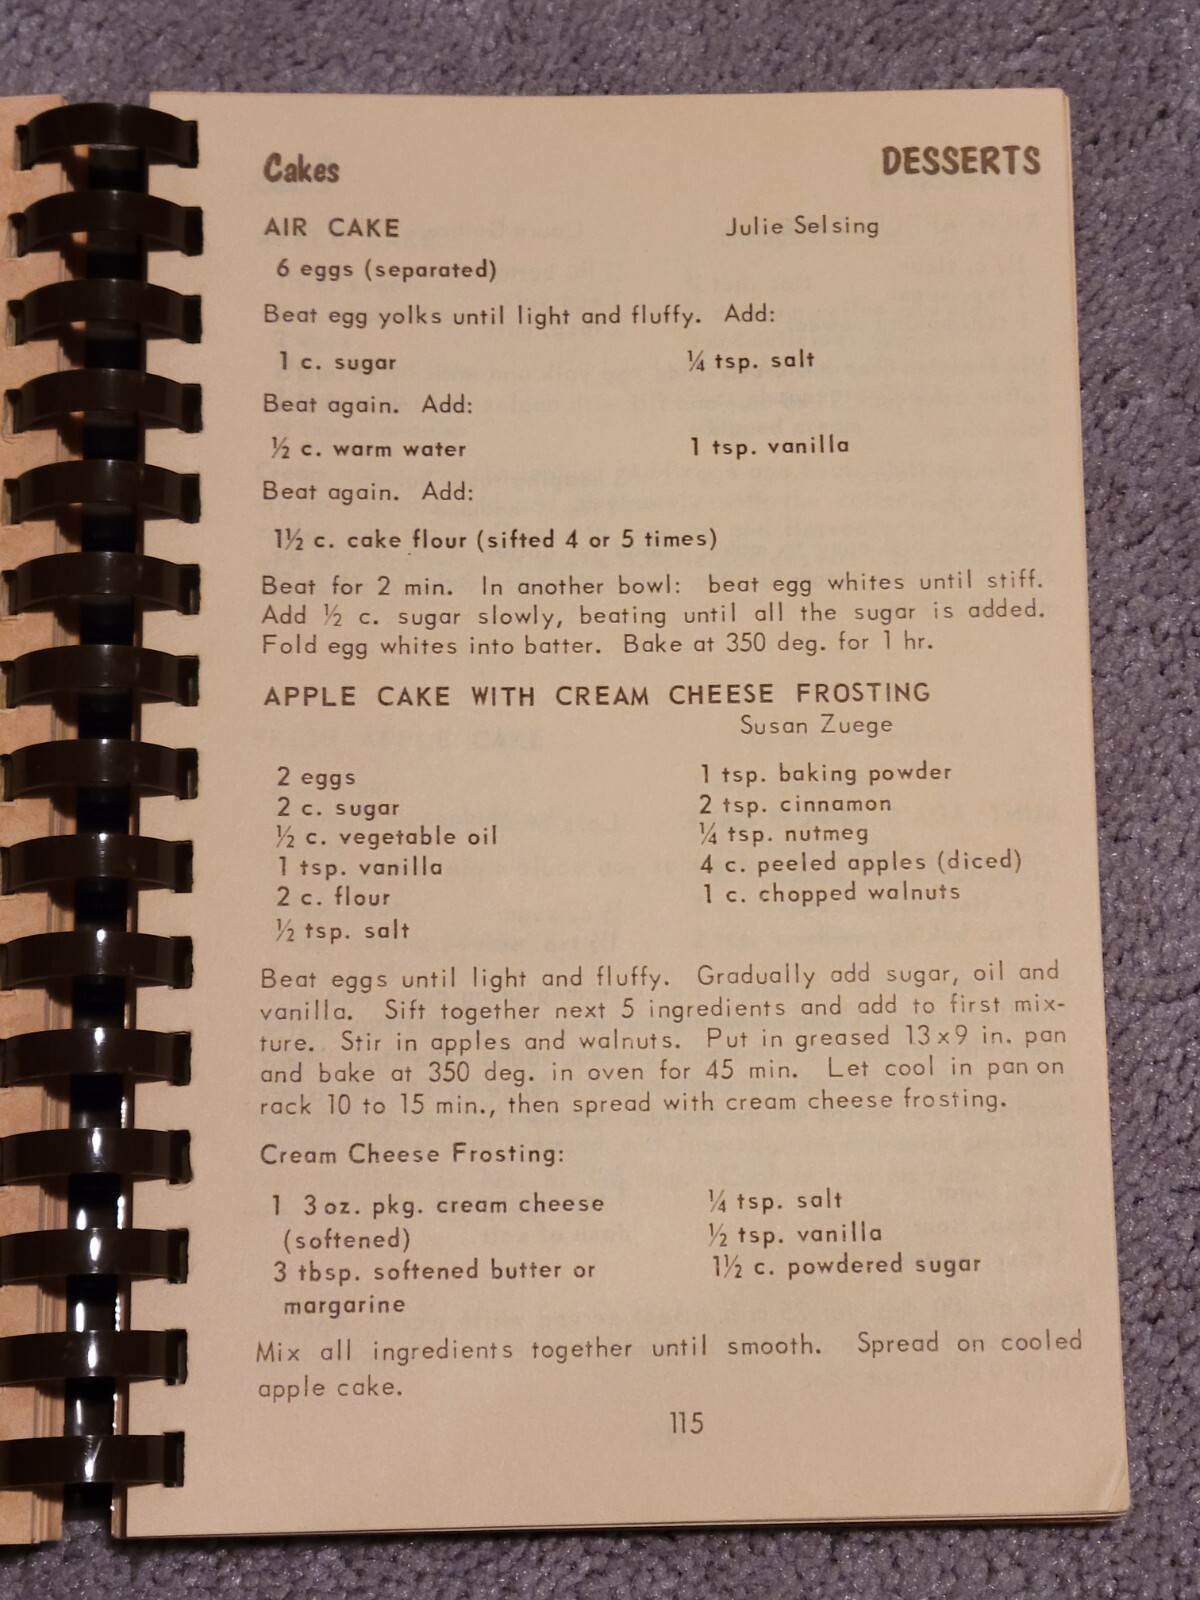 Cakes DESSERTS
AIR CAKE Julie Selsing
6 eggs (separated)
Beat egg yolks until light and fluffy. Add:
1 c. sugar ¼ tsp. salt
Beat again. Add:
½ c. warm water 1 tsp. vanilla
Beat again. Add:
1½ c. cake flour (sifted 4 or 5 times)
Beat for 2 min. In another bowl: beat egg whites until stiff.
Add ½ c. sugar slowly, beating until all the sugar is added.
Fold egg whites into batter. Bake at 350 deg. for 1 hr.
APPLE CAKE WITH CREAM CHEESE FROSTING
Susan Zuege
2 eggs 1 tsp. baking powder
2 c. sugar 2 tsp. cinnamon
½ c. vegetable oil ¼ tsp. nutmeg
1 tsp. vanilla 4 c. peeled apples (diced)
2 c. flour 1 c. chopped walnuts
½ tsp. salt
Beat eggs until light and fluffy. Gradually add sugar, oil and
vanilla. Sift together next 5 ingredients and add to first mix-
ture. Stir in apples and walnuts. Put in greased 13x9 in. pan
and bake at 350 deg. in oven for 45 min. Let cool in pan on
rack 10 to 15 min., then spread with cream cheese frosting.
Cream Cheese Frosting:
1 3 oz. pkg. cream cheese ¼ tsp. salt
(softened) ½ tsp. vanilla
3 tbsp. softened butter or 1½ c. powdered sugar
margarine
Mix all ingredients together until smooth. Spread on cooled
apple cake.
115